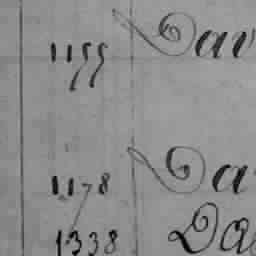 1155 Dav
1178 Da
1338 Da